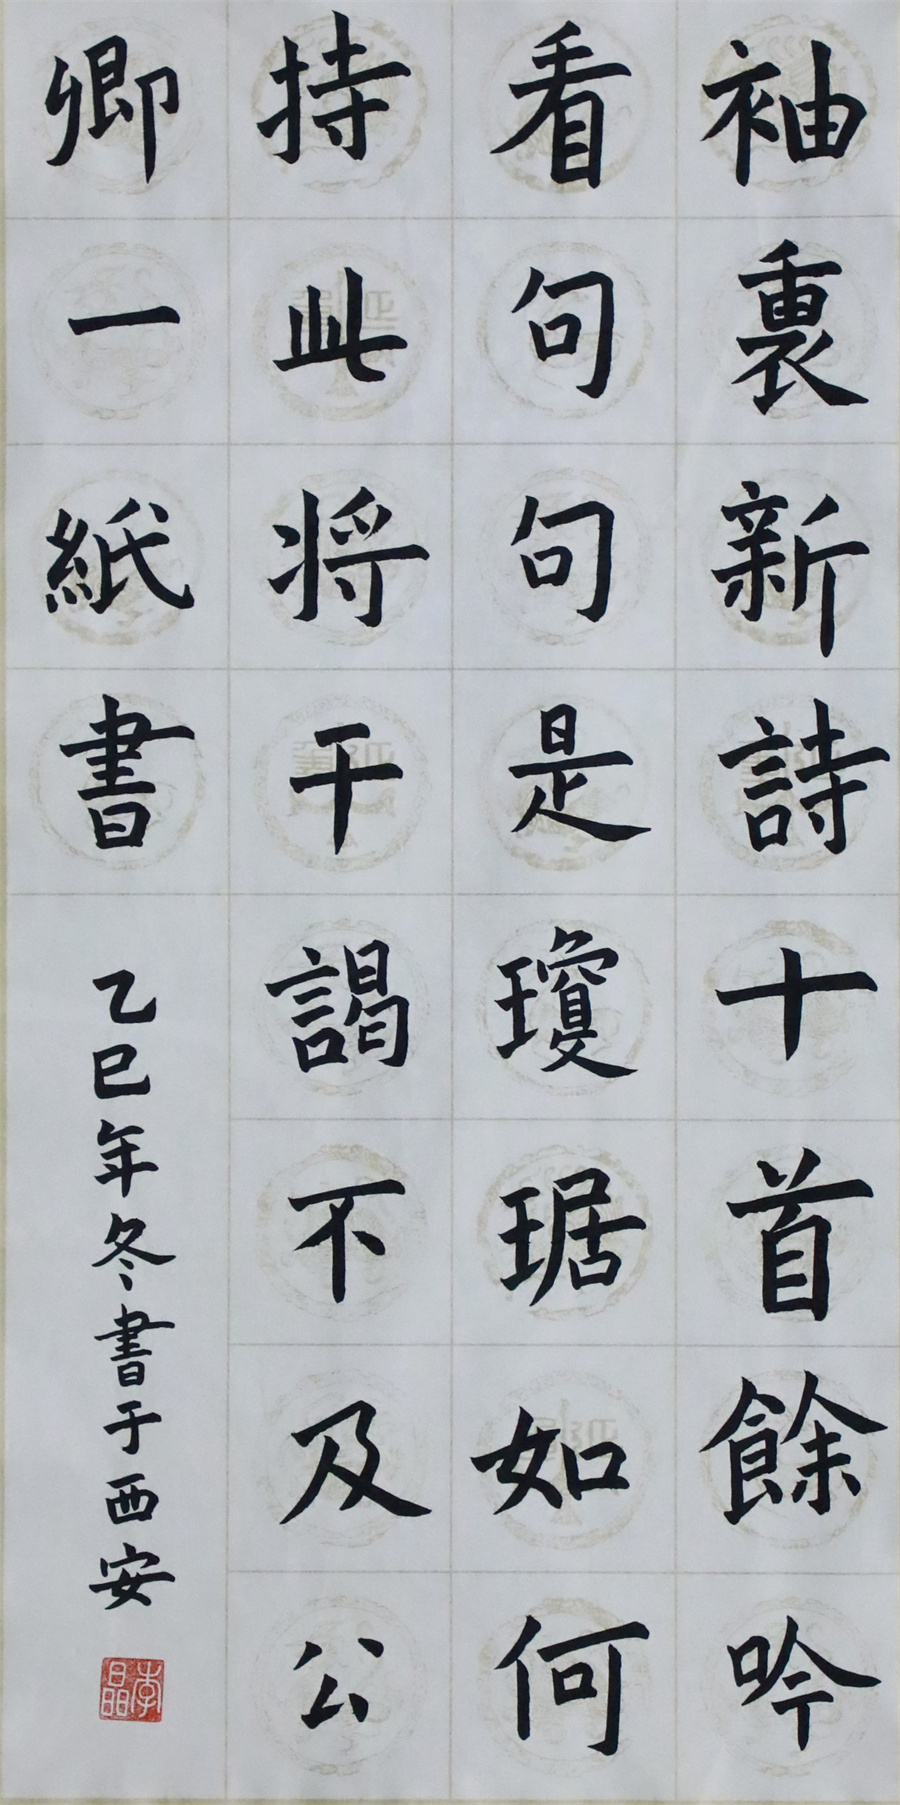 袖裏新詩十首餘吟
看句句是瓊琚如何
持此将干謁不及公
卿一紙書
乙巳年冬書于西安
李晶